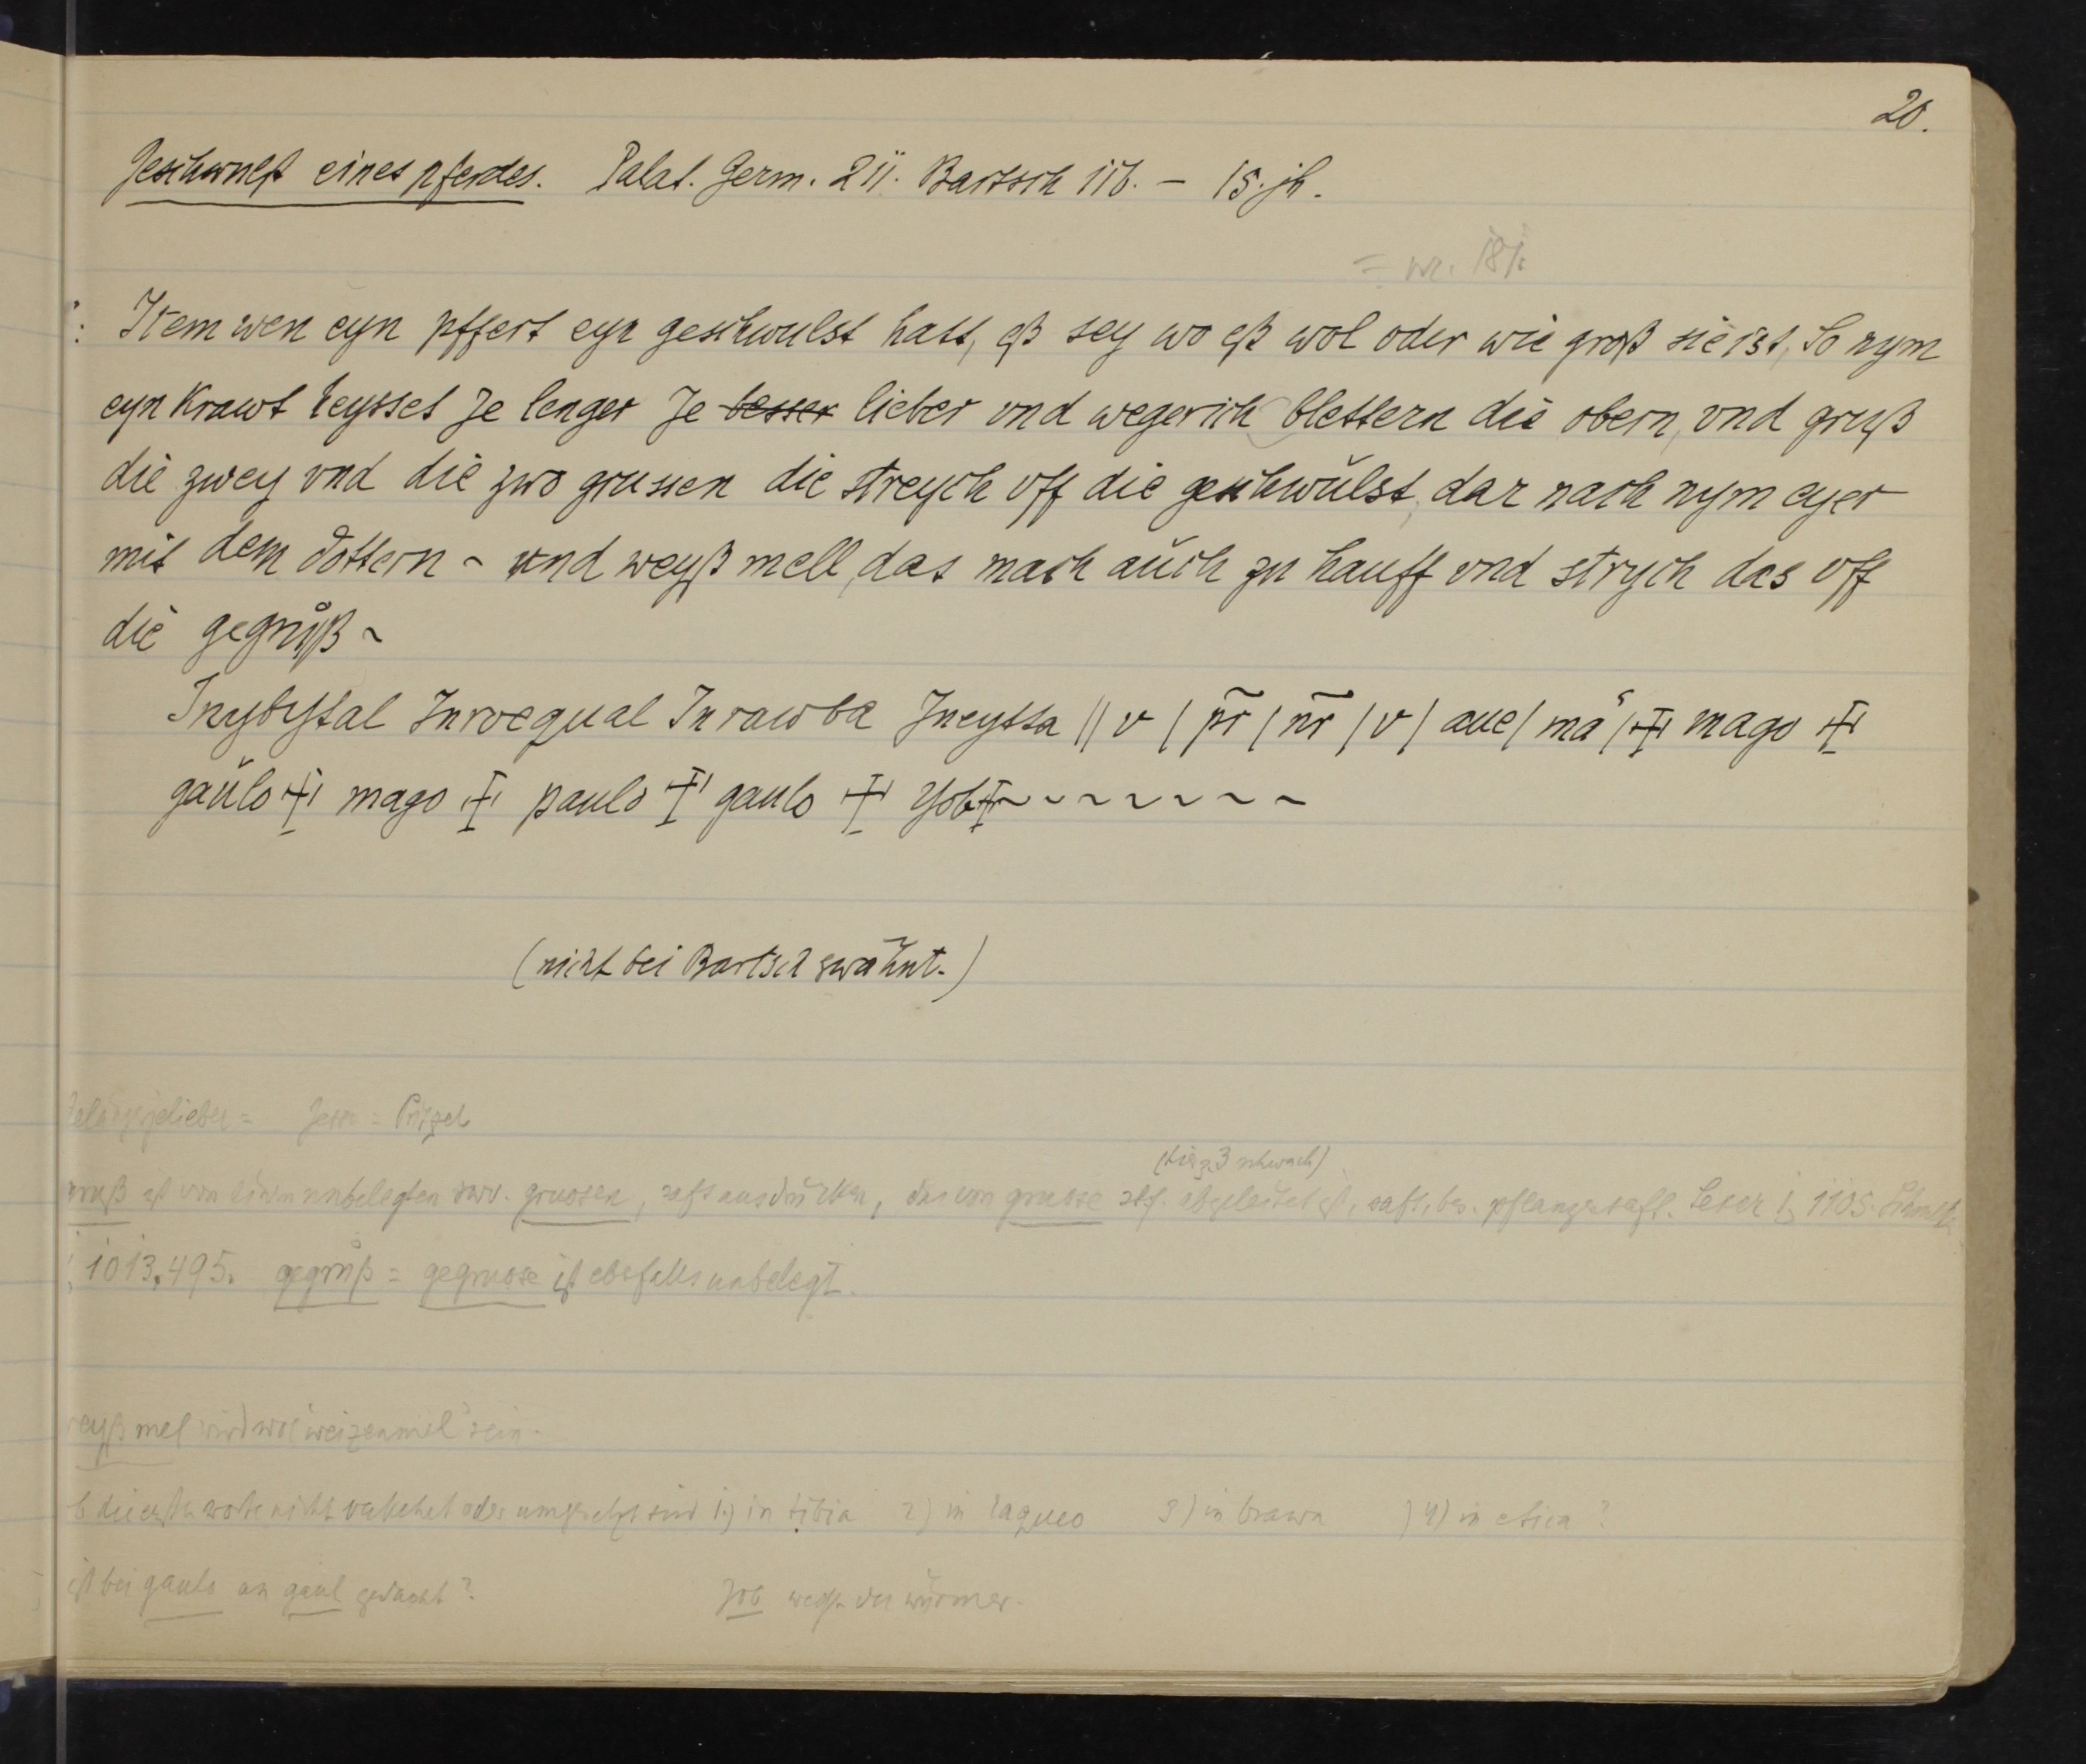 20.
Geschwulst eines pferdes. Palat. Germ. 211. Bartsch 116. – 15. jh.
= nr. 181
: Item wen eyn pffert eyn geschwulst hatt, eß sey wo eß wol oder wie groß sie ist, So nym
eyn Krawt heysset Je lenger Je besser lieber vnd wegerich blettern die obern, vnd gruß
die zwey vnd die zwo grussen die streych vff die geschwŭlst, dar nach nym eyer
mit dem dottern ~ und weyß mell, das mach aŭch zu hauff vnd strych das vff
die gegrůß ~
Inybystal Inroequal Inrawba Ineytta // v / pr̃ / nr̃ / v / aue / ma / ‡ mago ‡
gaŭlo ‡ mago ‡ paulo ‡ gaulo ‡ Yob ‡ ~ ~ ~ ~ ~ ~ ~ ~
(nicht bei Bartsch erwähnt.)
jelängerjelieber = Jessen = Pritzel
(hierz. 3 schwach)
gruß ist von einem unbelegten swv. gruosen, saft ausdrücken, das von gruose stf. abgeleitet ist, saft, bes. pflanzensaft. Lexer I, 1105. Schmeller
I 1013, 495. gegrůß = gegruose ist ebenfalls unbelegt.
weyß mel wird wol "weizenmel" sein.
ob die ersten worte nicht verkehrt oder umgesetzt sind 1.) in tibia 2) in laqueo 3) in brawa 4) in etica?
ist bei gaulo an gaul gedacht? Job wegen der würmer.